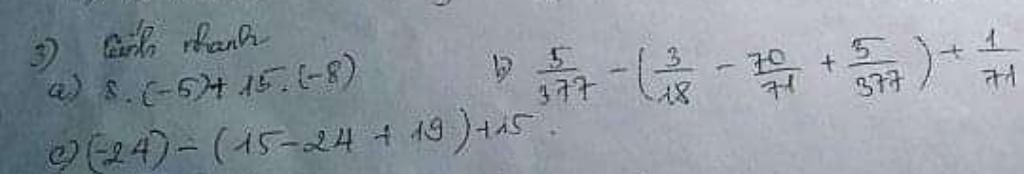 3) Tính nhanh
a) 8.(-5)+ 15.(-8)
b) 5/377 - (3/18 - 70/71 + 5/377) + 1/71
c) (-24) - (15-24 + 19) +15.